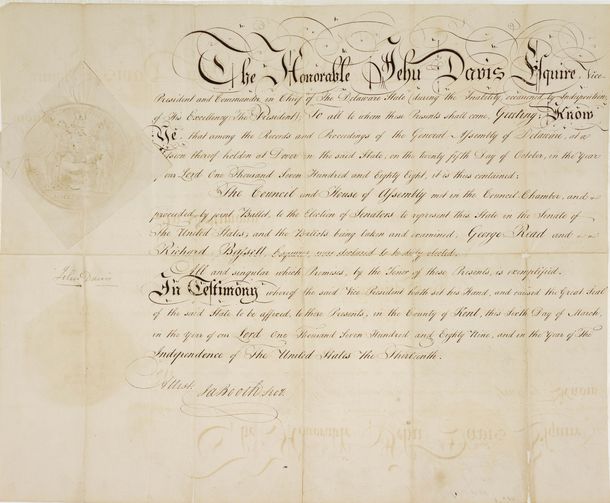 The Honorable Jehu Davis Esquire, Vice
President and Commander in Chief of The Delaware State (during the Inability, occasioned by Indisposition,
of His Excellency The President); To all to whom these Presents shall come, Greeting: Know
Ye that among the Records and Proceedings of the General Assembly of Delaware, at a
Session thereof holden at Dover in the said State, on the twenty fifth Day of October, in the Year
of our Lord One Thousand Seven Hundred and Eighty Eight, it is thus contained:
The Council and House of Assembly met in the Council Chamber, and
proceeded, by joint Ballot, to the Election of Senators to represent this State in the Senate of
The United States; and the Ballots being taken and examined, George Read and
Richard Bassett, Esquires, were declared to be duly elected.
All and singular which Premises, by the Tenor of these Presents, is exemplified.
In Testimony whereof the said Vice President hath set his Hand, and caused the Great Seal
of the said State to be affixed, to these Presents, in the County of Kent, this Sixth Day of March,
in the Year of our Lord One Thousand Seven Hundred and Eighty Nine, and in the Year of the
Independence of The United States the Thirteenth.
Jehu Davis
Attest.
Ja Booth Secr.